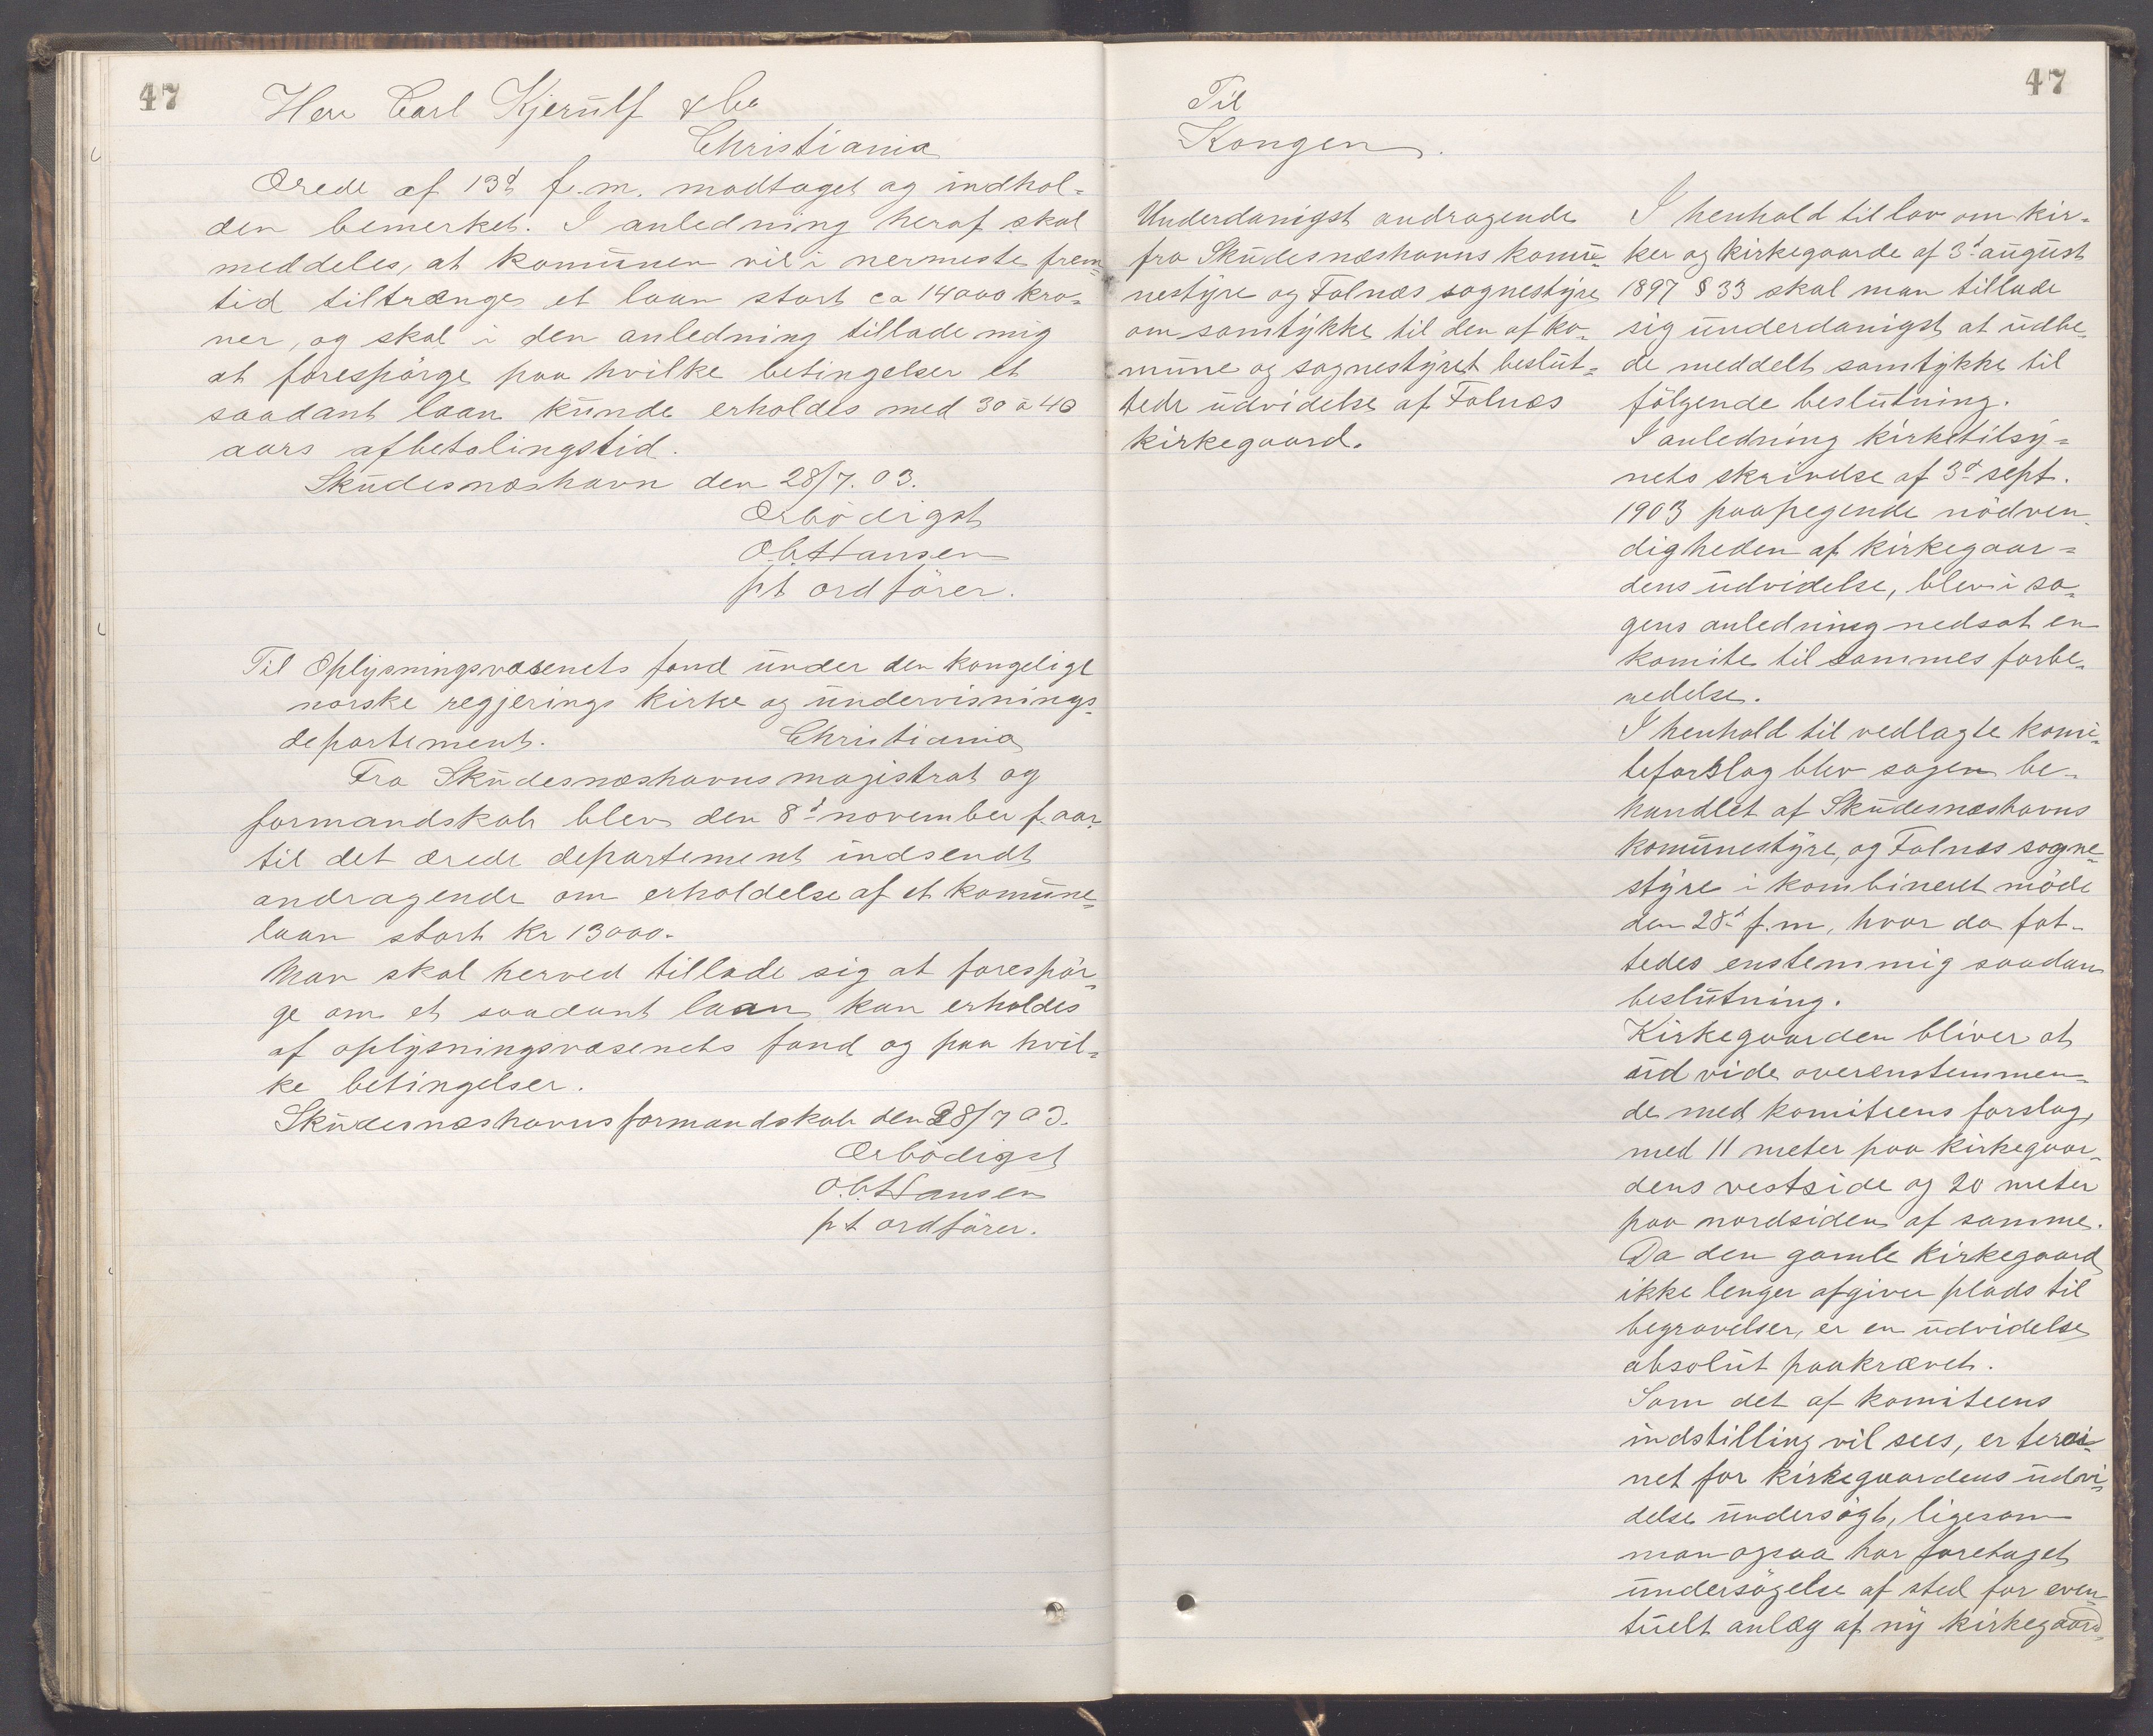 47
Herr Carl Kjerulf & Co
Christiania
Ærede af 13d f.m. modtaget og indhol-
den bemerket. I anledning heraf skal
meddeles, at komunen vil i nermeste frem-
tid tiltrænge et laan stort ca 14000 kro-
ner, og skal i den anledning tillade mig
at forespörge paa hvilke betingelser et
saadant laan kunde erholdes med 30 à 40
aars afbetalingstid.
Skudesnæshavn den 28/7. 03.
Ærbödigst
O.C. Hansen
pt ordförer.
Til Oplysningsvæsenets fond under den kongelige
norske regjerings kirke og undervisnings-
departement. Christiania
Fra Skudesnæshavns magistrat og
formandskab blev den 8d november f. aar
til det ærede departement indsendt
andragende om erholdelse af et komune-
laan stort kr 13000.
Man skal herved tillade sig at forespör-
ge om et saadant laan kan erholdes
af oplysningsvæsenets fond og paa hvil-
ke betingelser.
Skudesnæshavns formandskab den 28/7 03.
Ærbödigst
O.C. Hansen
pt ordförer.
47
Til
Kongen.
Underdanigst andragende
fra Skudesnæshavns komu-
nestyre og Falnæs sognestyre
om samtykke til den af ko-
mune og sognestyret beslut-
tede udvidelse af Falnæs
kirkegaard.
I henhold til lov om kir-
ker og kirkegaarde af 3d august
1897 § 33 skal man tillade
sig underdanigst at udbe-
de meddelt samtykke til
fölgende beslutning.
I anledning kirketilsy-
nets skrivelse af 3d sept.
1903 paapegende nödven-
digheden af kirkegaar-
dens udvidelse, blev i sa-
gens anledning nedsat en
komite til sammes forbe-
redelse.
I henhold til vedlagte komi-
teforslag blev sagen be-
handlet af Skudesnæshavns
komunestyre, og Falnæs sogne-
styre i kombineret möde
den 28d f.m, hvor da fat-
tedes enstemmig saadan
beslutning.
Kirkegaarden bliver at
udvide overenstemmen-
de med komiteens forslag,
med 11 meter paa kirkegaar-
dens vestside og 20 meter
paa nordsiden af samme.
Da den gamle kirkegaard
ikke lenger afgiver plads til
begravelser, er en udvidelse
absolut paakrævet.
Som det af komiteens
indstilling vil sees, er terai-
net for kirkegaardens udvi-
delse undersögt, ligesom
man ogsaa har foretaget
undersögelse af sted for even-
tuelt anlæg af ny kirkegaard-